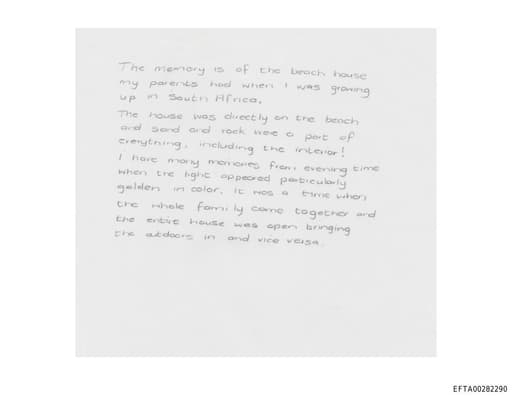 The memory is of the beach house
my parents had when I was growing
up in South Africa.
The house was directly on the beach
and sand and rock were a part of
everything, including the interior!
I have many memories from evening time
when the light appeared particularly
golden in color. It was a time when
the whole family came together and
the entire house was open bringing
the outdoors in and vice versa.
EFTA00282290